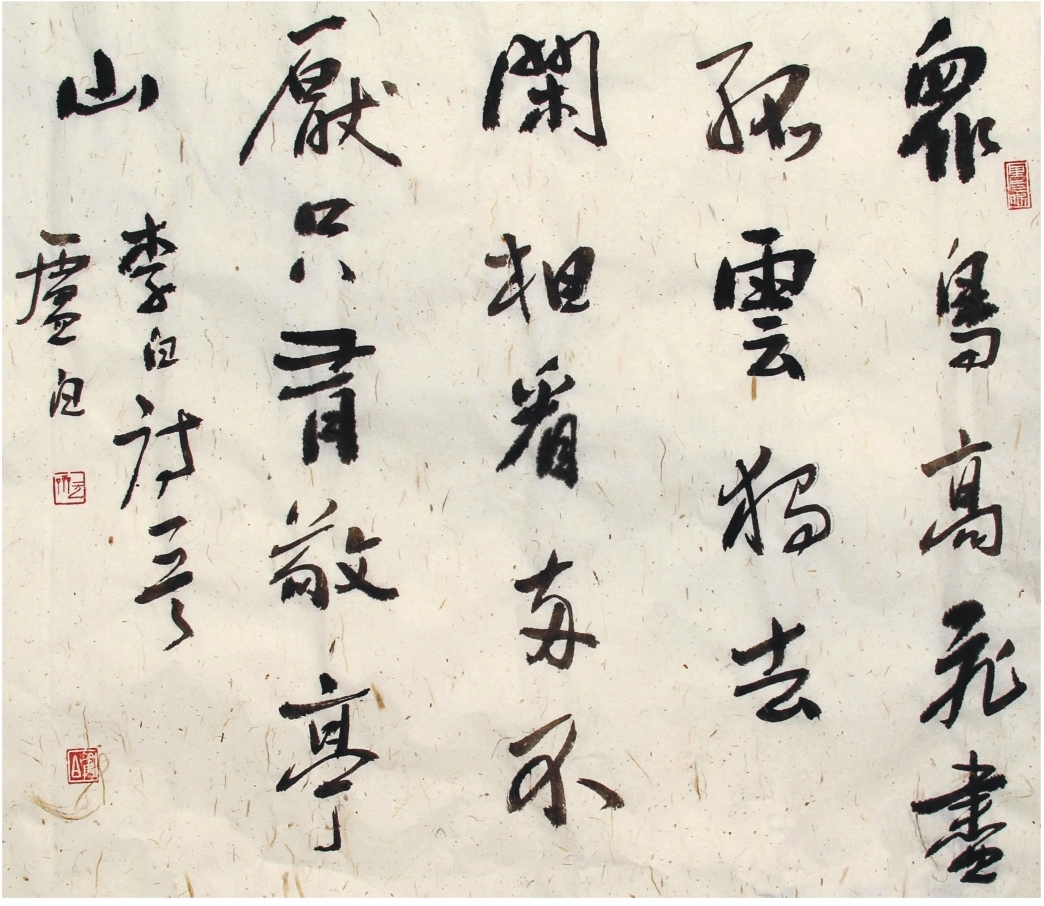 眾鳥高飛盡
孤雲獨去
閑相看兩不
厭只有敬亭
山
李白詩一首
盧白